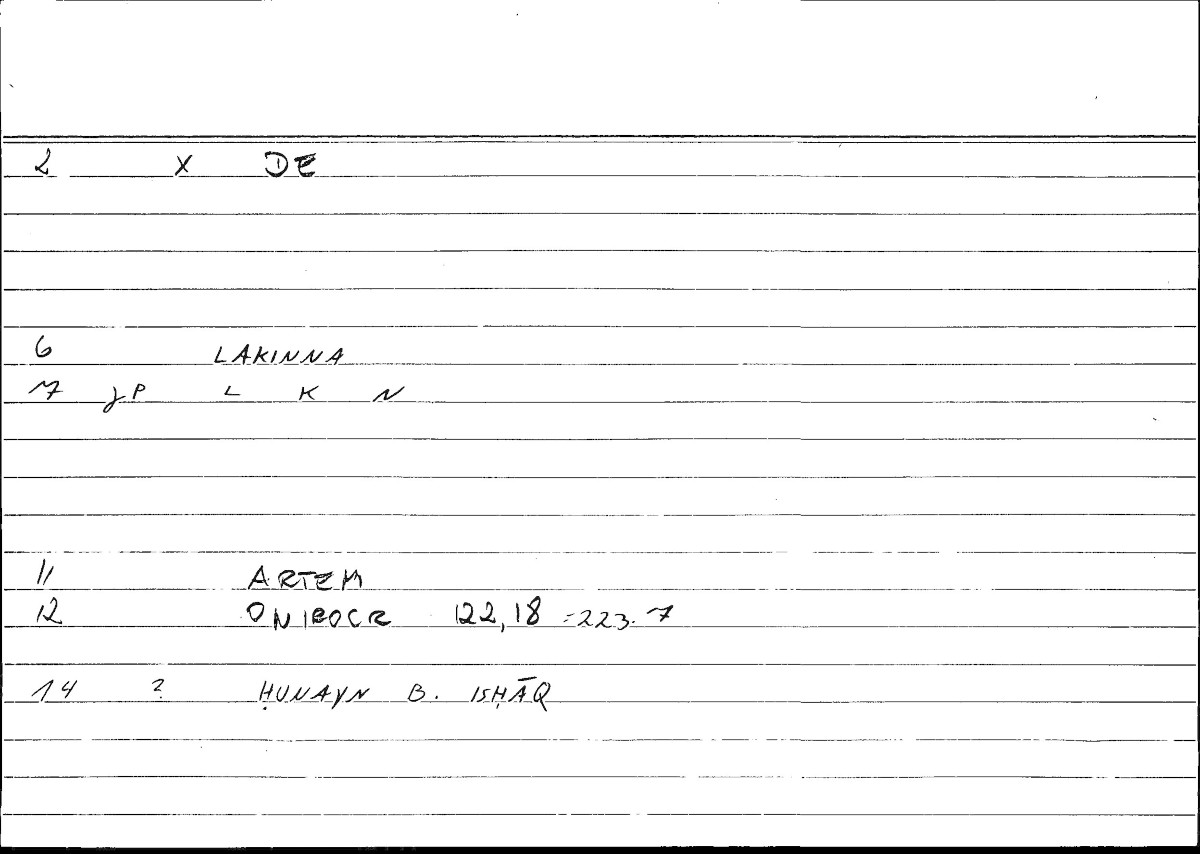 2 X DE
6 LAKINNA
7 JP L K N
11 ARTEM
12 ONIROCR 122,18 = 223.7
14 ? ḤUNAYN B. ISḤĀQ